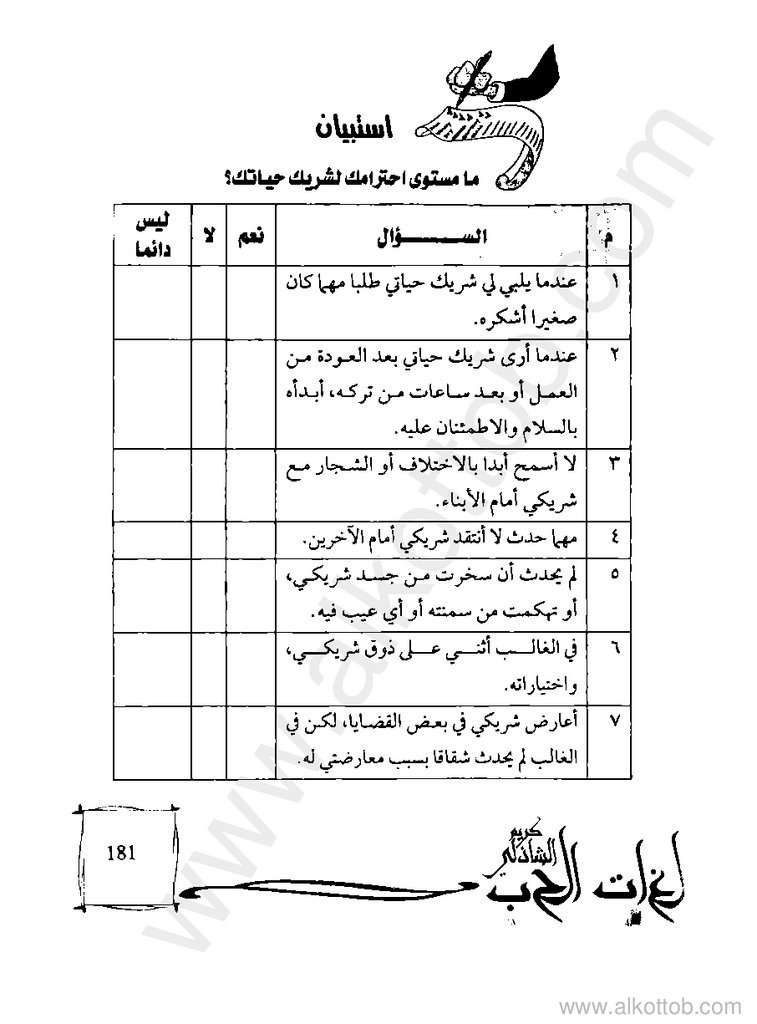 استبيان
ما مستوى احترامك لشريك حياتك؟
م السـؤال نعم لا ليس دائما
١ عندما يلبي لي شريك حياتي طلبا مهما كان
صغيرا أشكره.
٢ عندما أرى شريك حياتي بعد العودة من
العمل أو بعد ساعات من تركه، أبدأه
بالسلام والاطمئنان عليه.
٣ لا أسمح أبدا بالاختلاف أو الشجار مع
شريكي أمام الأبناء.
٤ مهما حدث لا أنتقد شريكي أمام الآخرين.
٥ لم يحدث أن سخرت من جسد شريكي،
أو تهكمت من سمنته أو أي عيب فيه.
٦ في الغالب أثني على ذوق شريكي،
واختياراته.
٧ أعارض شريكي في بعض القضايا، لكن في
الغالب لم يحدث شقاقا بسبب معارضتي له.
كريم
الشاذلي
لغات الحب
181
www.alkottob.com
www.alkottob.com